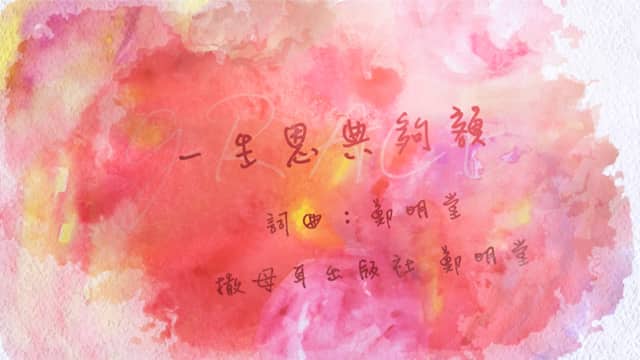 GRACE
一生恩典夠額
詞曲：鄭明堂
撒母耳出版社 鄭明堂